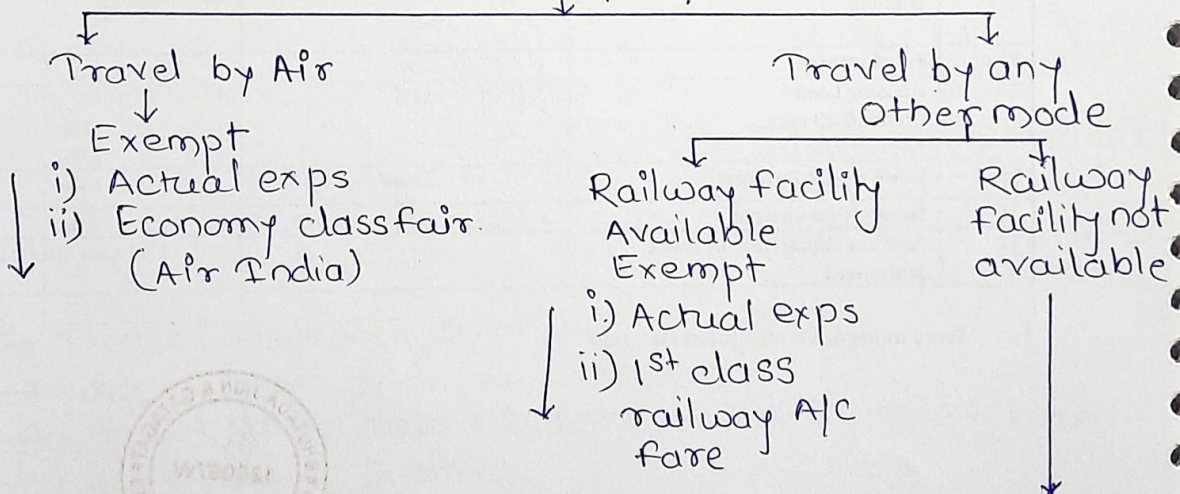 Travel by Air
Exempt
i) Actual exps
ii) Economy class fair.
(Air India)
Travel by any
other mode
Railway facility
Available
Exempt
i) Actual exps
ii) 1st class
railway A/C
fare
Railway
facility not
available